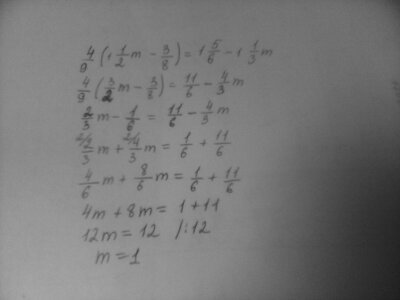 4/9 (1 1/2 m − 3/8) = 1 5/6 − 1 1/3 m
4/9 (3/2 m − 3/8) = 11/6 − 4/3 m
2/3 m − 1/6 = 11/6 − 4/3 m
2/ 2/3 m + 2/ 4/3 m = 1/6 + 11/6
4/6 m + 8/6 m = 1/6 + 11/6
4m + 8m = 1 + 11
12m = 12 /:12
m = 1